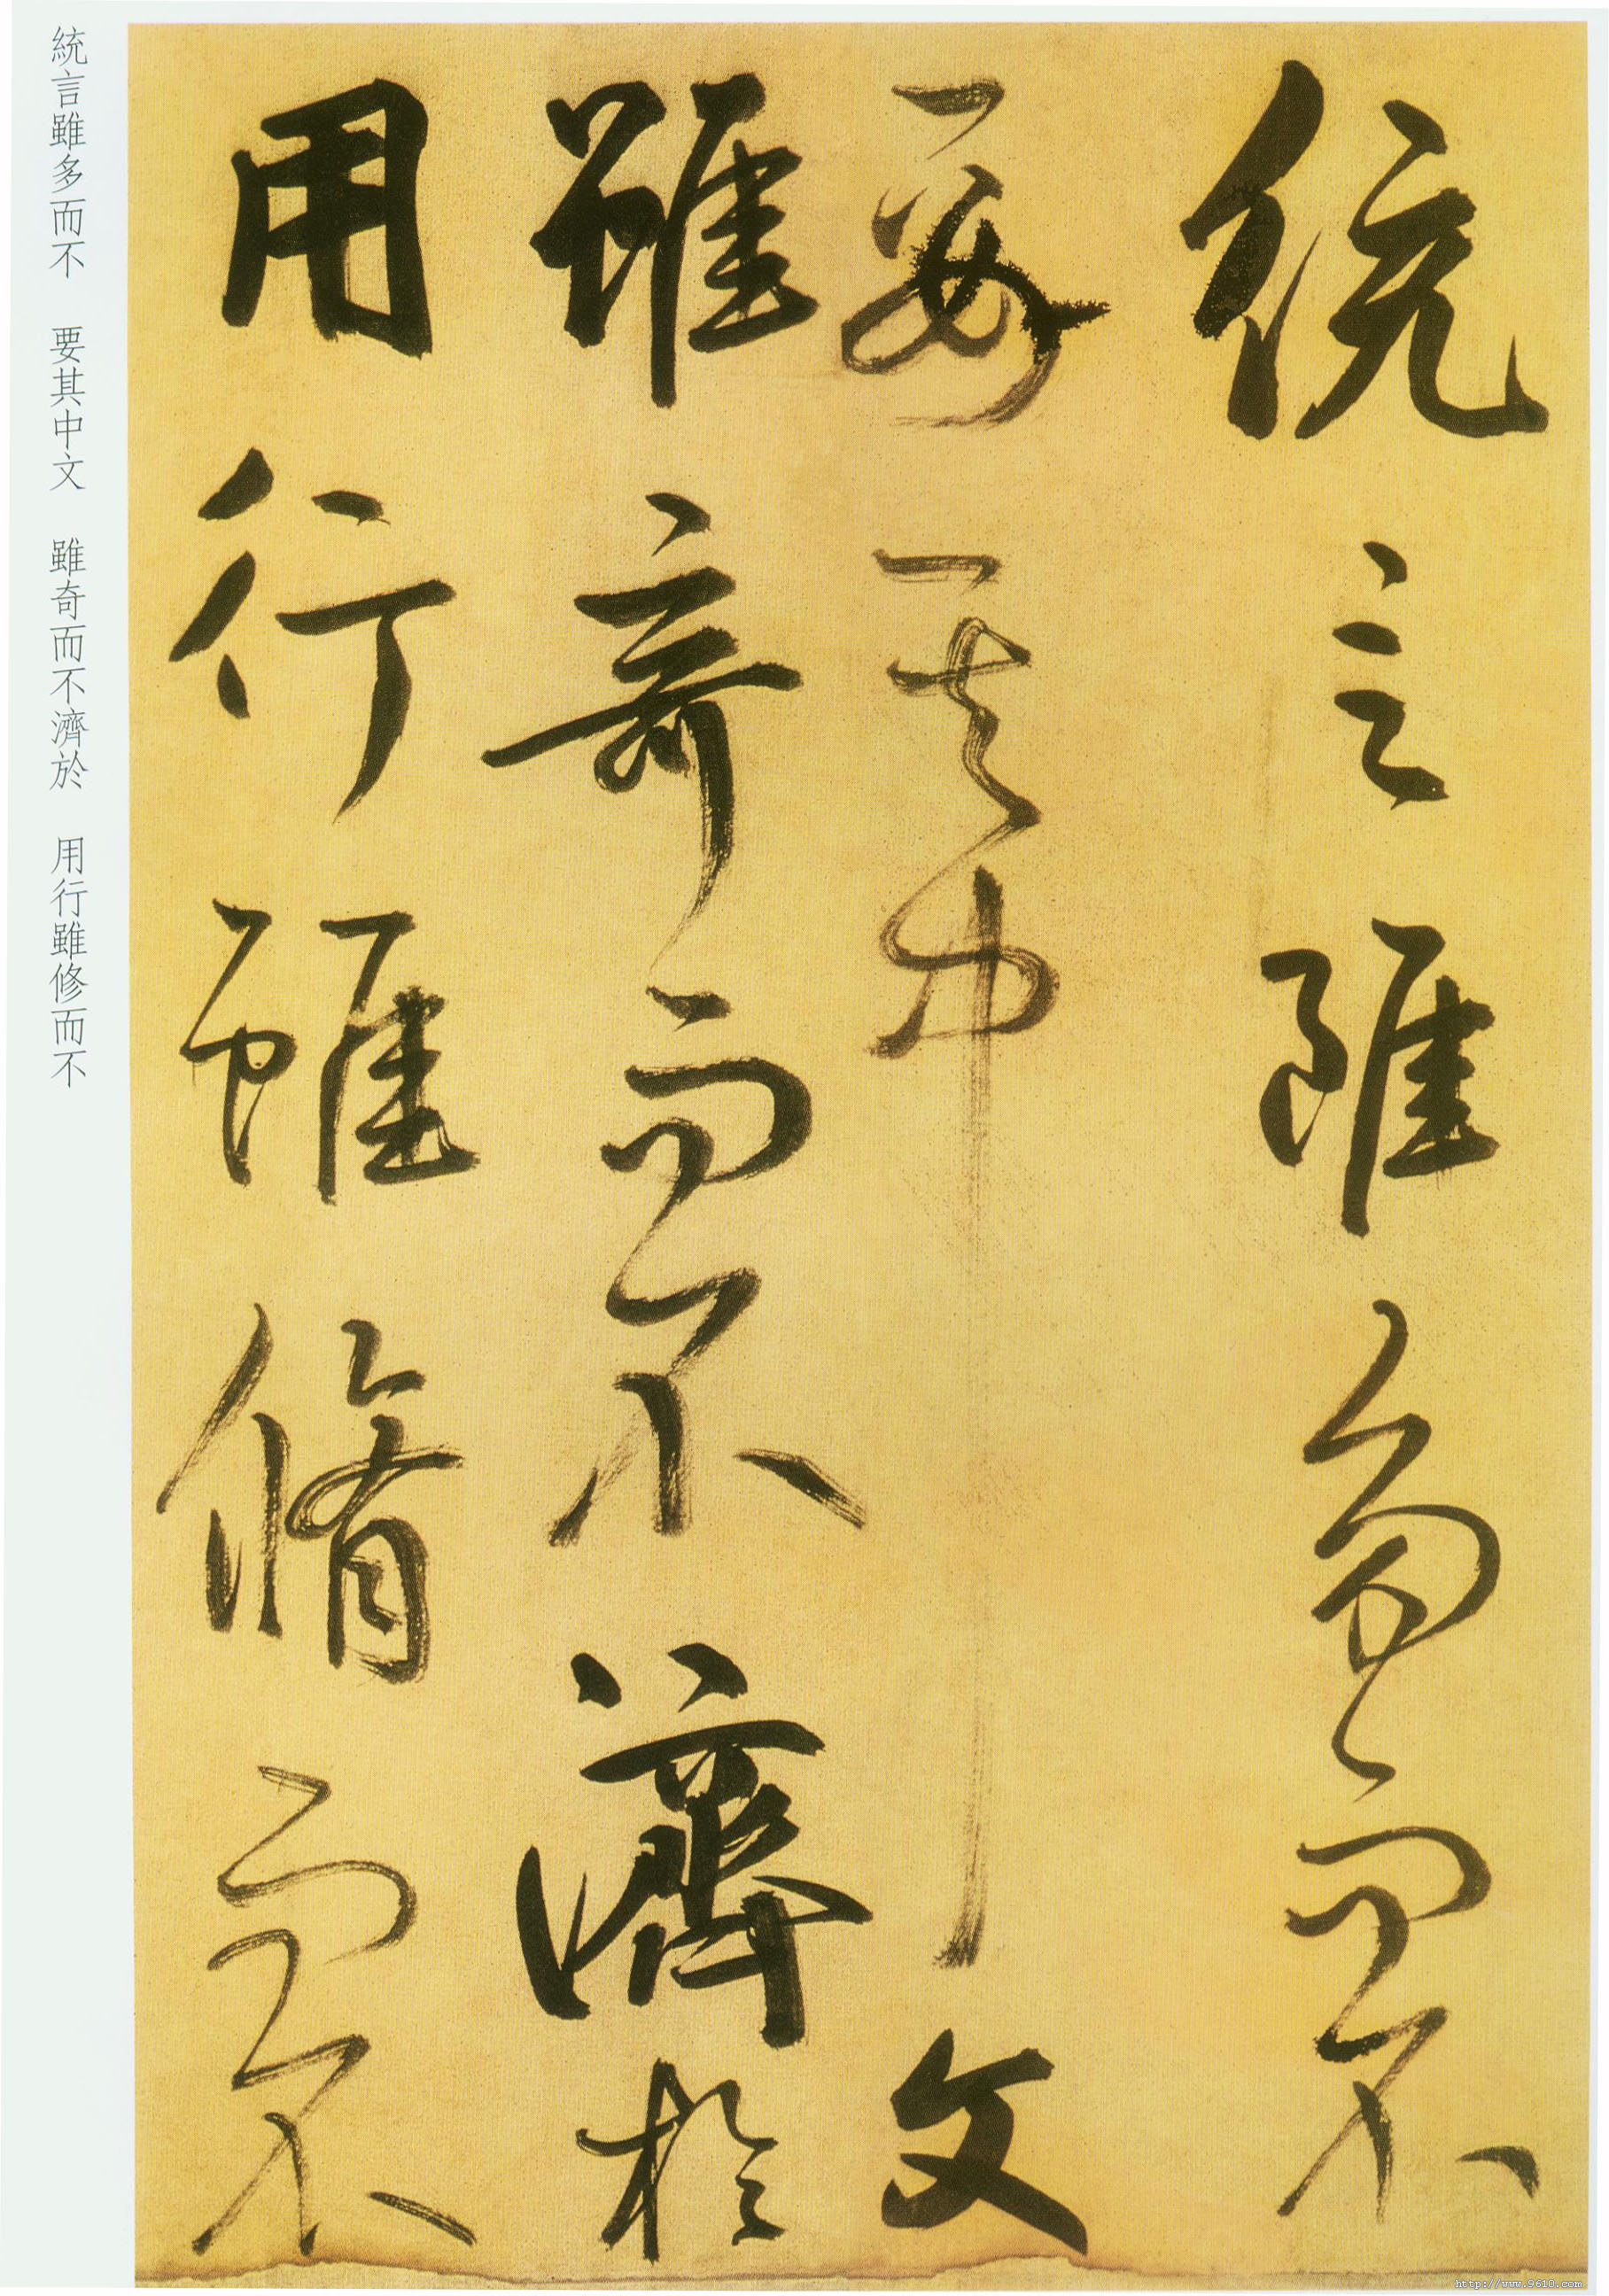 統言雖多而不
要其中文
雖奇而不濟於
用行雖脩而不
統言雖多而不　要其中文　雖奇而不濟於　用行雖修而不
http://www.9610.com